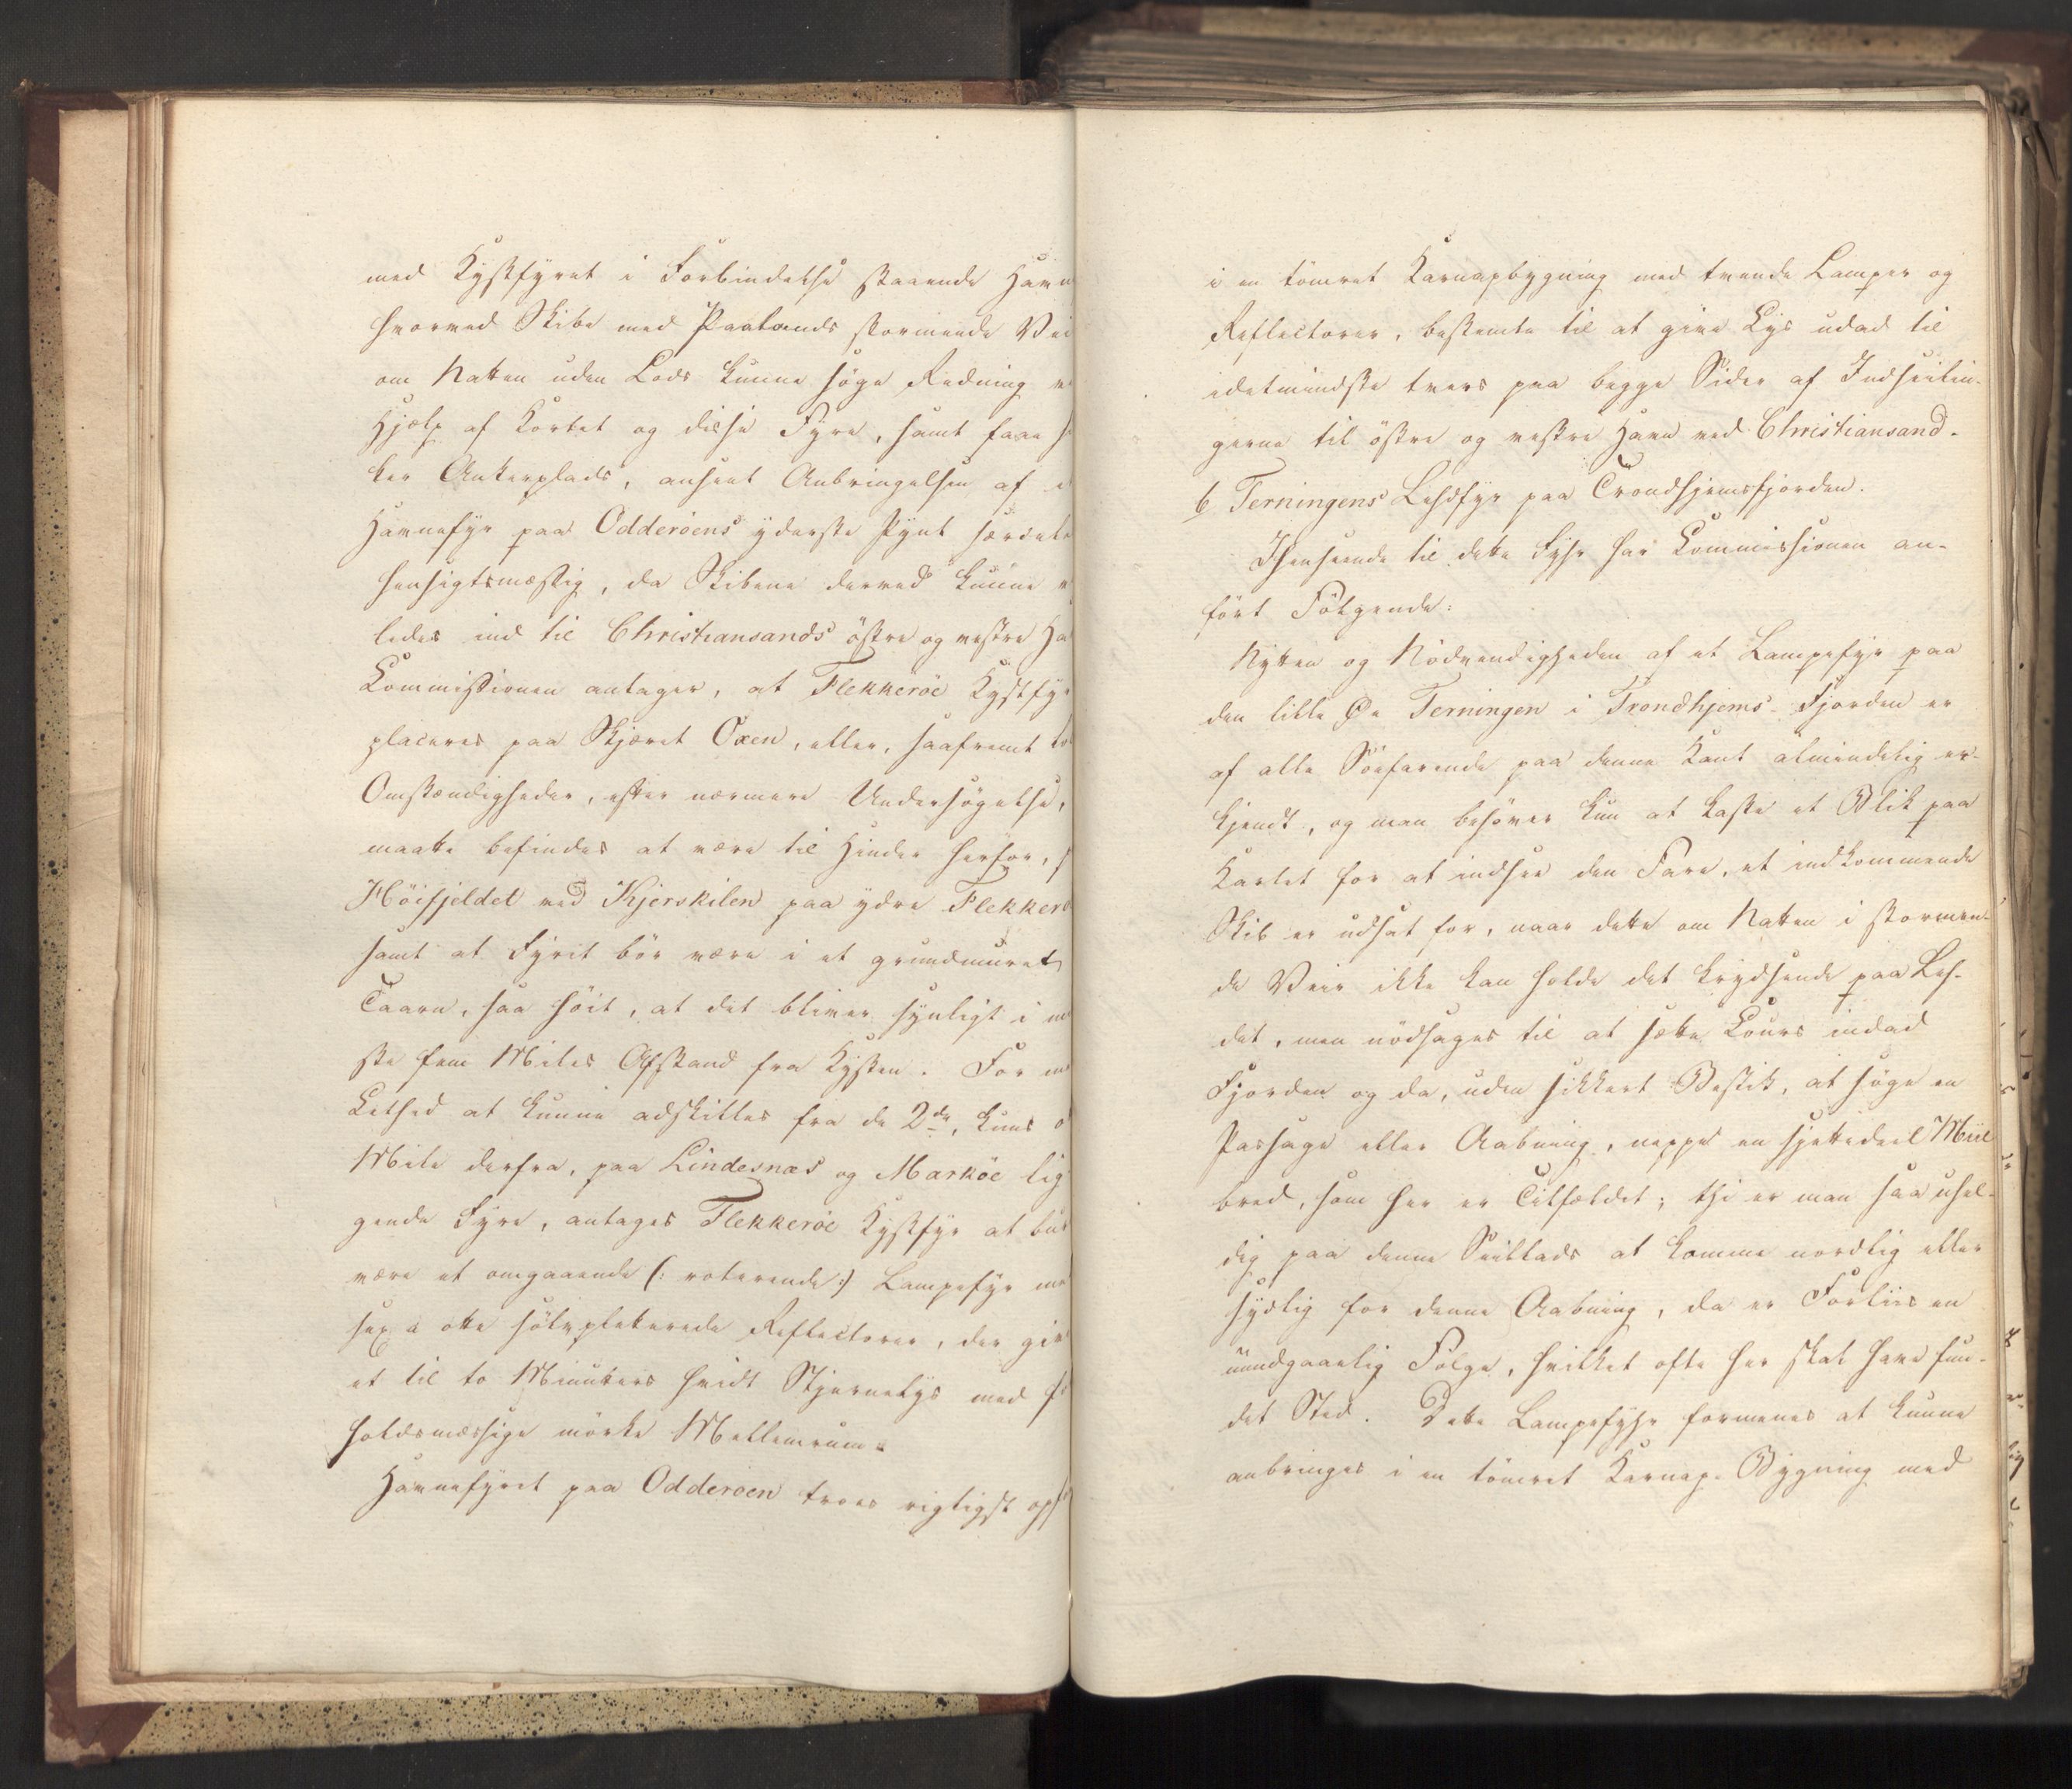 med Kystfyret i Forbindelse staaende Havn
hvorved Skibe med Paalands stormende Vei
om Natten uden Lods kunne söge Redning
Hjælp af Kortet og disse Fyre, samt faae
ker Ankerplads, anseet Anbringelsen af
Havnefyr paa Odderöens yderste Pynt særdeles
hensigtsmæssig, da Skibene derved kunne
ledes ind til Christiansands östre og vestre Ha
Commissionen antager, at Flekkeröe Kystfyr
placeres paa Skjæret Oxen, eller, saafremt
Omstændigheder, efter nærmere Undersögelse,
maatte befindes at være til Hinder herfor,
Höifjeldet ved Kjerskilen paa ydre Flekkerö
samt at Fyret bör være i et grundmuret
Taarn, saa höit, at det bliver synligt i
ste fem Miles Afstand fra Kysten. For
Lethed at kunne adskilles fra de 2de, kuns
Mile derfra, paa Lindesnæs og Marköe lig
gende Fyre, antages Flekkeröe Kystfyr at bur
være et omgaaende (: roterende :) Lampefyr me
sex a otte sölvpletterede Reflectorer, der giv
et til to Minuters hvidt Stjernelys med
holdsmæssige mörke Mellemrum.
Havnefyret paa Odderoen troes rigtigst
i en tömret Karnapbygning med tvende Lamper og
Reflectorer, bestemte til at give Lys udad til
idetmindste tvers paa begge Sider af Indseilin-
gerne til östre og vestre Havn ved Christiansand.
6 Terningens Lehdfyr paa Trondhjemsfjorden.
Ihenseende til dette Fyhr har Commissionen an-
fört Fölgende:
Nytten og Nödvendigheden af et Lampefyr paa
den lille Øe Terningen i Trondhjems-Fjorden er
af alle Söefarende paa denne Kant almindelig er-
kjendt, og man behöver kun at kaste et Blik paa
Kartet for at indsee den Fare, et indkommende
Skib er udsat for, naar dette om Natten i stormen-
de Veir ikke kan holde det krydsende paa Leh-
det, men nödsages til at sætte Cours indad
Fjorden og da, uden sikkert Bestik, at söge en
Passage eller Aabning, neppe en sjettedeel Miil
bred, som her er Tilfældet; thi er man saa uhel-
dig paa denne Seillads at komme nordlig eller
sydlig for denne Aabning, da er Forliis en
uundgaaelig Fölge, hvilket ofte her skal have fun-
det Sted. Dette Lampefyhr formenes at kunne
anbringes i en tömret Karnap-Bygning med